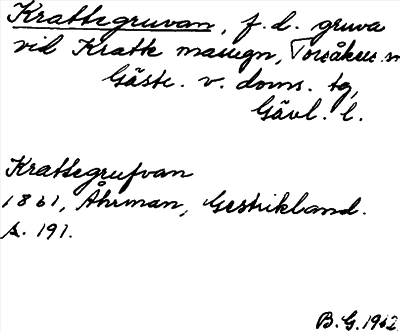 Krattegruvan, f. d. gruva
vid Kratte masugn, Torsåkers sn
Gästr. v. doms. tg,
Gävl. l.
Krattegrufvan
1861, Åhrman, Gestrikland.
s. 191.
B.G. 1962